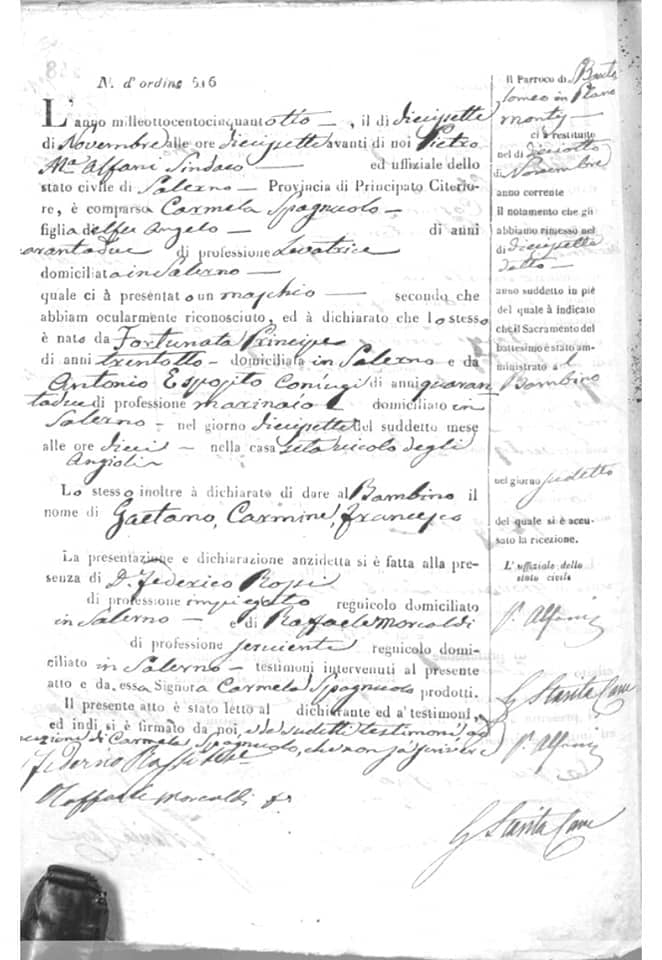 N. d'ordine 516
L'anno milleottocentocinquantotto —, il di diecipette
di Novembre alle ore diecipette avanti di noi Pietro
Ma. Alfani Sindaco — ed uffiziale dello
stato civile di Salerno — Provincia di Principato Citerio-
re, è comparsa Carmela Spagnuolo —
figlia del fu Angelo — di anni
quarantadue di professione Levatrice
domiciliata in Salerno —
quale ci à presentato un maschio — secondo che
abbiam ocularmente riconosciuto, ed à dichiarato che lo stesso
è nato da Fortunata Principe
di anni trentotto — domiciliata in Salerno e da
Antonio Esposito Coniugi di anni quaran
tadue di professione marinaio domiciliato in
Salerno — nel giorno diecipette del suddetto mese
alle ore dieci — nella casa sita vicolo degli
Angioli
Lo stesso inoltre à dichiarato di dare al Bambino il
nome di Gaetano, Carmine, Francesco
La presentazione e dichiarazione anzidetta si è fatta alla pre-
senza di D. Federico Rossi
di professione impiegato regnicolo domiciliato
in Salerno — e di Raffaele Morcaldi
di professione serviente regnicolo domi-
ciliato in Salerno — testimoni intervenuti al presente
atto e da essa Signora Carmela Spagnuolo prodotti.
Il presente atto è stato letto al dichiarante ed a' testimoni,
ed indi si è firmato da noi, e da sudetti testimoni, ad
eccezione di Carmela Spagnuolo, che non sa scrivere
Federico Rossi
Raffaele Morcaldi
Il Parroco di Barto
lomeo in Plano
monty —
ci à restituito
nel di dieciotto
di Novembre
anno corrente
il notamento che gli
abbiamo rimesso nel
di diecipette
detto —
anno suddetto in piè
del quale à indicato
che il Sacramento del
battesimo è stato am-
ministrato a l
Bambino
nel giorno sudetto
del quale si è accu-
sato la ricezione.
L'uffiziale dello
stato civile
P. Alfani
G Santa Cane
P. Alfani
G Santa Cane